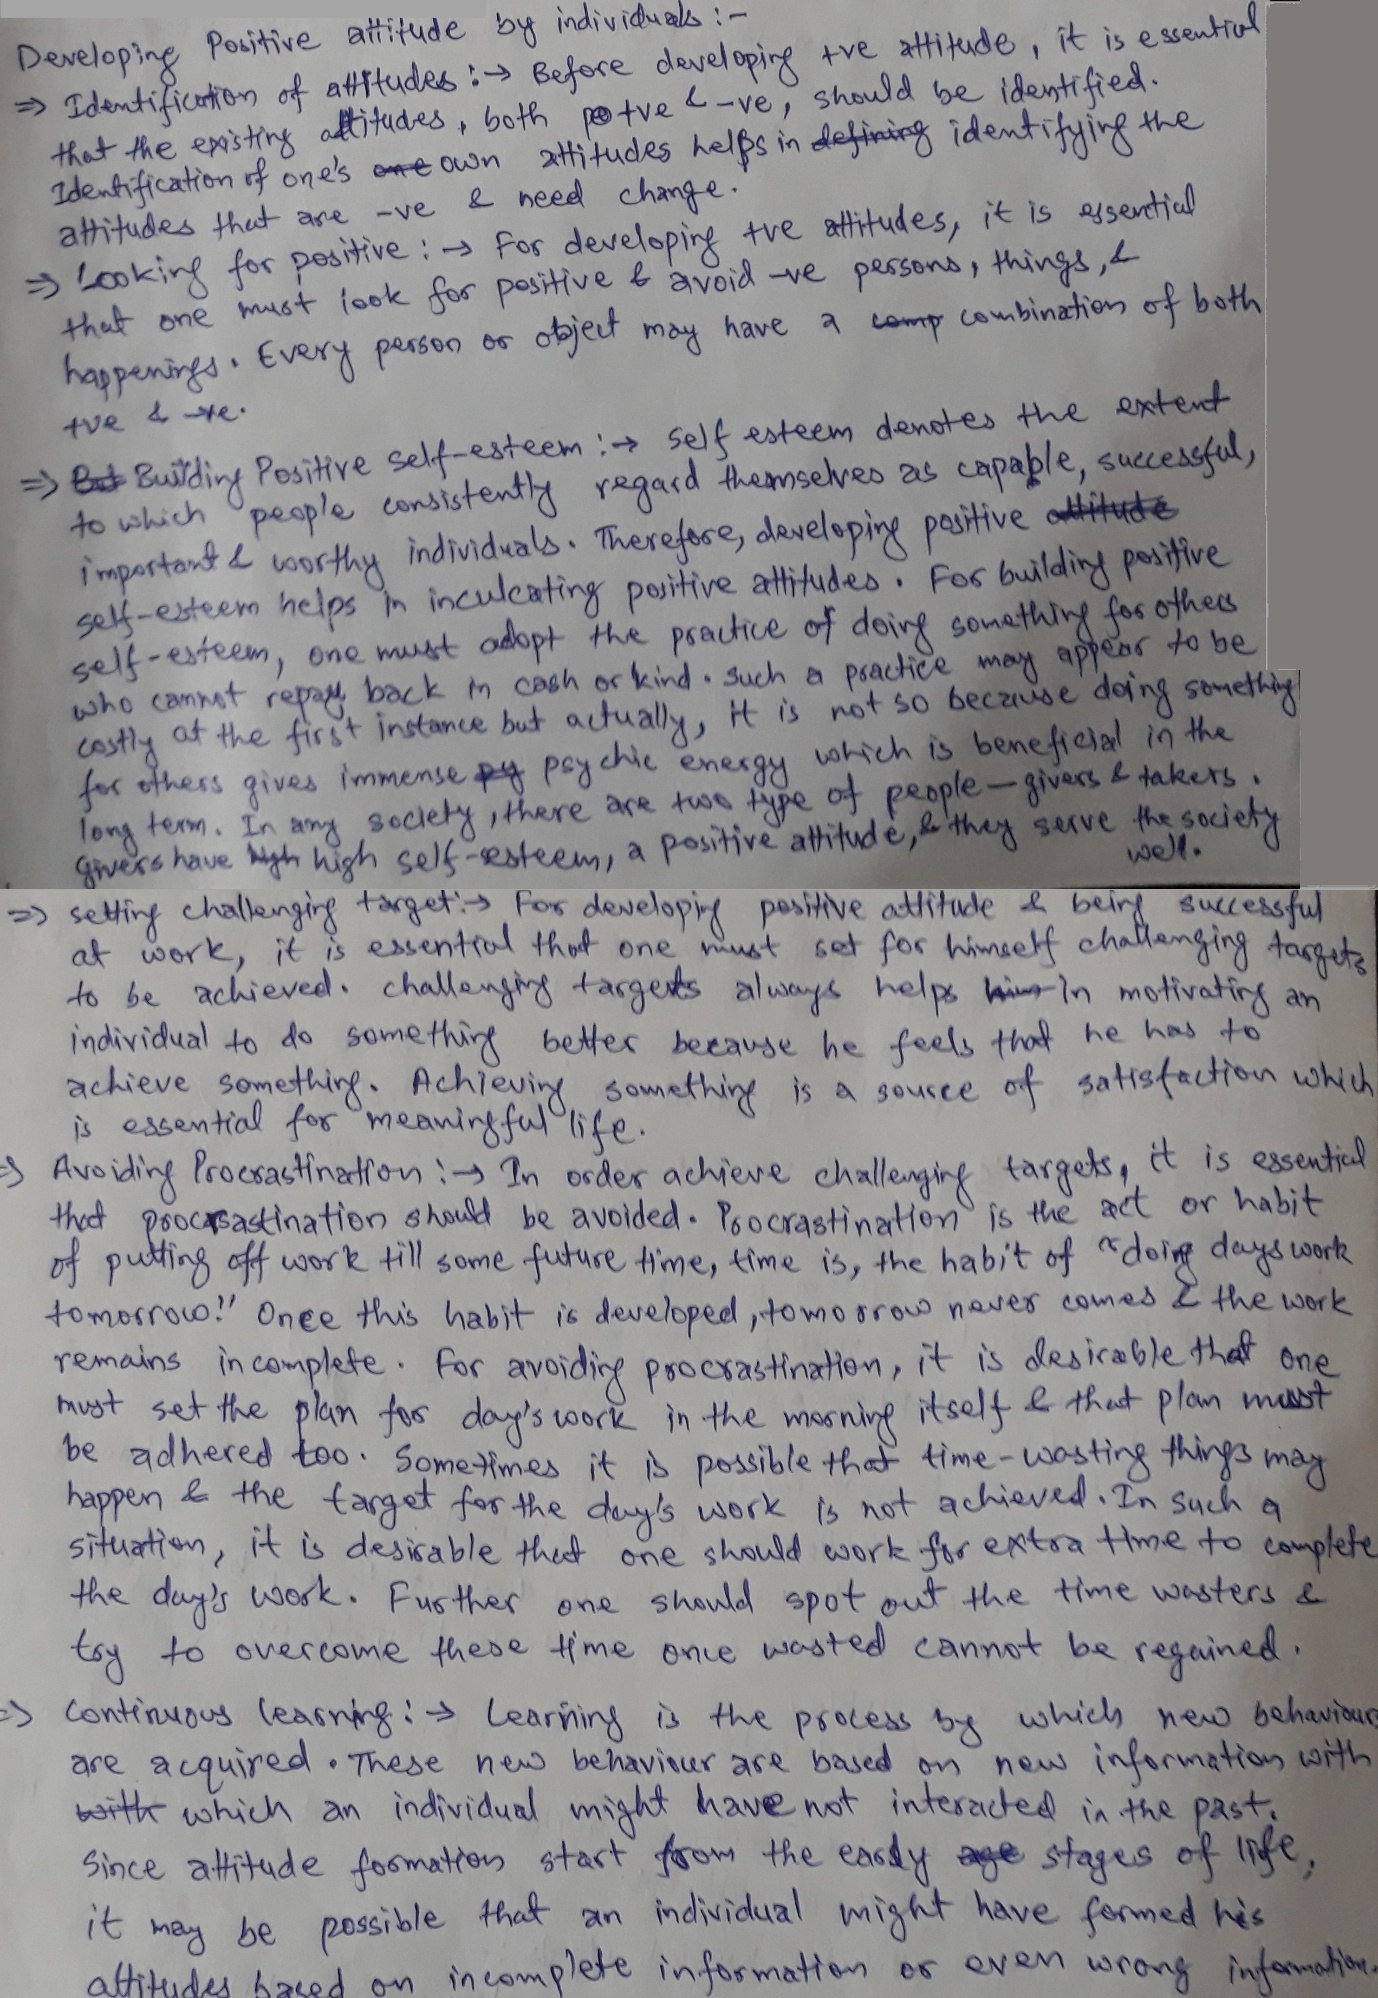 Developing Positive attitude by individuals :-
⇒ Identification of attitudes :→ Before developing +ve attitude, it is essential
that the existing attitudes, both +ve & -ve, should be identified.
Identification of one's own attitudes helps in identifying the
attitudes that are -ve & need change.
⇒ Looking for positive :→ For developing +ve attitudes, it is essential
that one must look for positive & avoid -ve persons, things, &
happenings. Every person or object may have a combination of both
+ve & -ve.
⇒ Building Positive self-esteem :→ Self esteem denotes the extent
to which people consistently regard themselves as capable, successful,
important & worthy individuals. Therefore, developing positive
self-esteem helps in inculcating positive attitudes. For building positive
self-esteem, one must adopt the practice of doing something for others
who cannot repay back in cash or kind. Such a practice may appear to be
costly at the first instance but actually, it is not so because doing something
for others gives immense psychic energy which is beneficial in the
long term. In any society, there are two type of people — givers & takers.
Givers have high self-esteem, a positive attitude, & they serve the society
well.
⇒ setting challenging target :→ For developing positive attitude & being successful
at work, it is essential that one must set for himself challenging targets
to be achieved. Challenging targets always helps in motivating an
individual to do something better because he feels that he has to
achieve something. Achieving something is a source of satisfaction which
is essential for meaningful life.
⇒ Avoiding Procrastination :→ In order achieve challenging targets, it is essential
that procrastination should be avoided. Procrastination is the act or habit
of putting off work till some future time, time is, the habit of "doing days work
tomorrow!" Once this habit is developed, tomorrow never comes & the work
remains incomplete. For avoiding procrastination, it is desirable that one
must set the plan for day's work in the morning itself & that plan must
be adhered too. Sometimes it is possible that time-wasting things may
happen & the target for the day's work is not achieved. In such a
situation, it is desirable that one should work for extra time to complete
the day's work. Further one should spot out the time wasters &
try to overcome these time once wasted cannot be regained.
⇒ Continuous learning :→ Learning is the process by which new behaviours
are acquired. These new behaviour are based on new information with
which an individual might have not interacted in the past.
Since attitude formation start from the early stages of life,
it may be possible that an individual might have formed his
attitudes based on incomplete information or even wrong information.